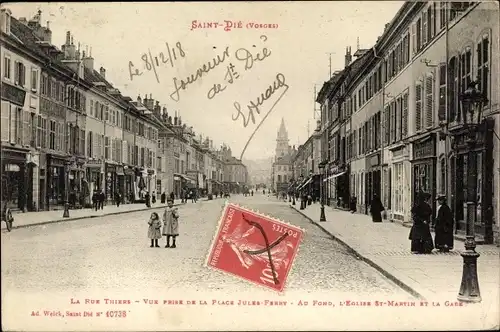 SAINT-DIÉ (VOSGES)
le 8/12/18
Souvenir
de St Dié
POSTES
10
LA RUE THIERS - VUE PRISE DE LA PLACE JULES-FERRY - AU FOND, L'EGLISE ST-MARTIN ET LA GARE
Ad. Weick, Saint Dié N° 10738